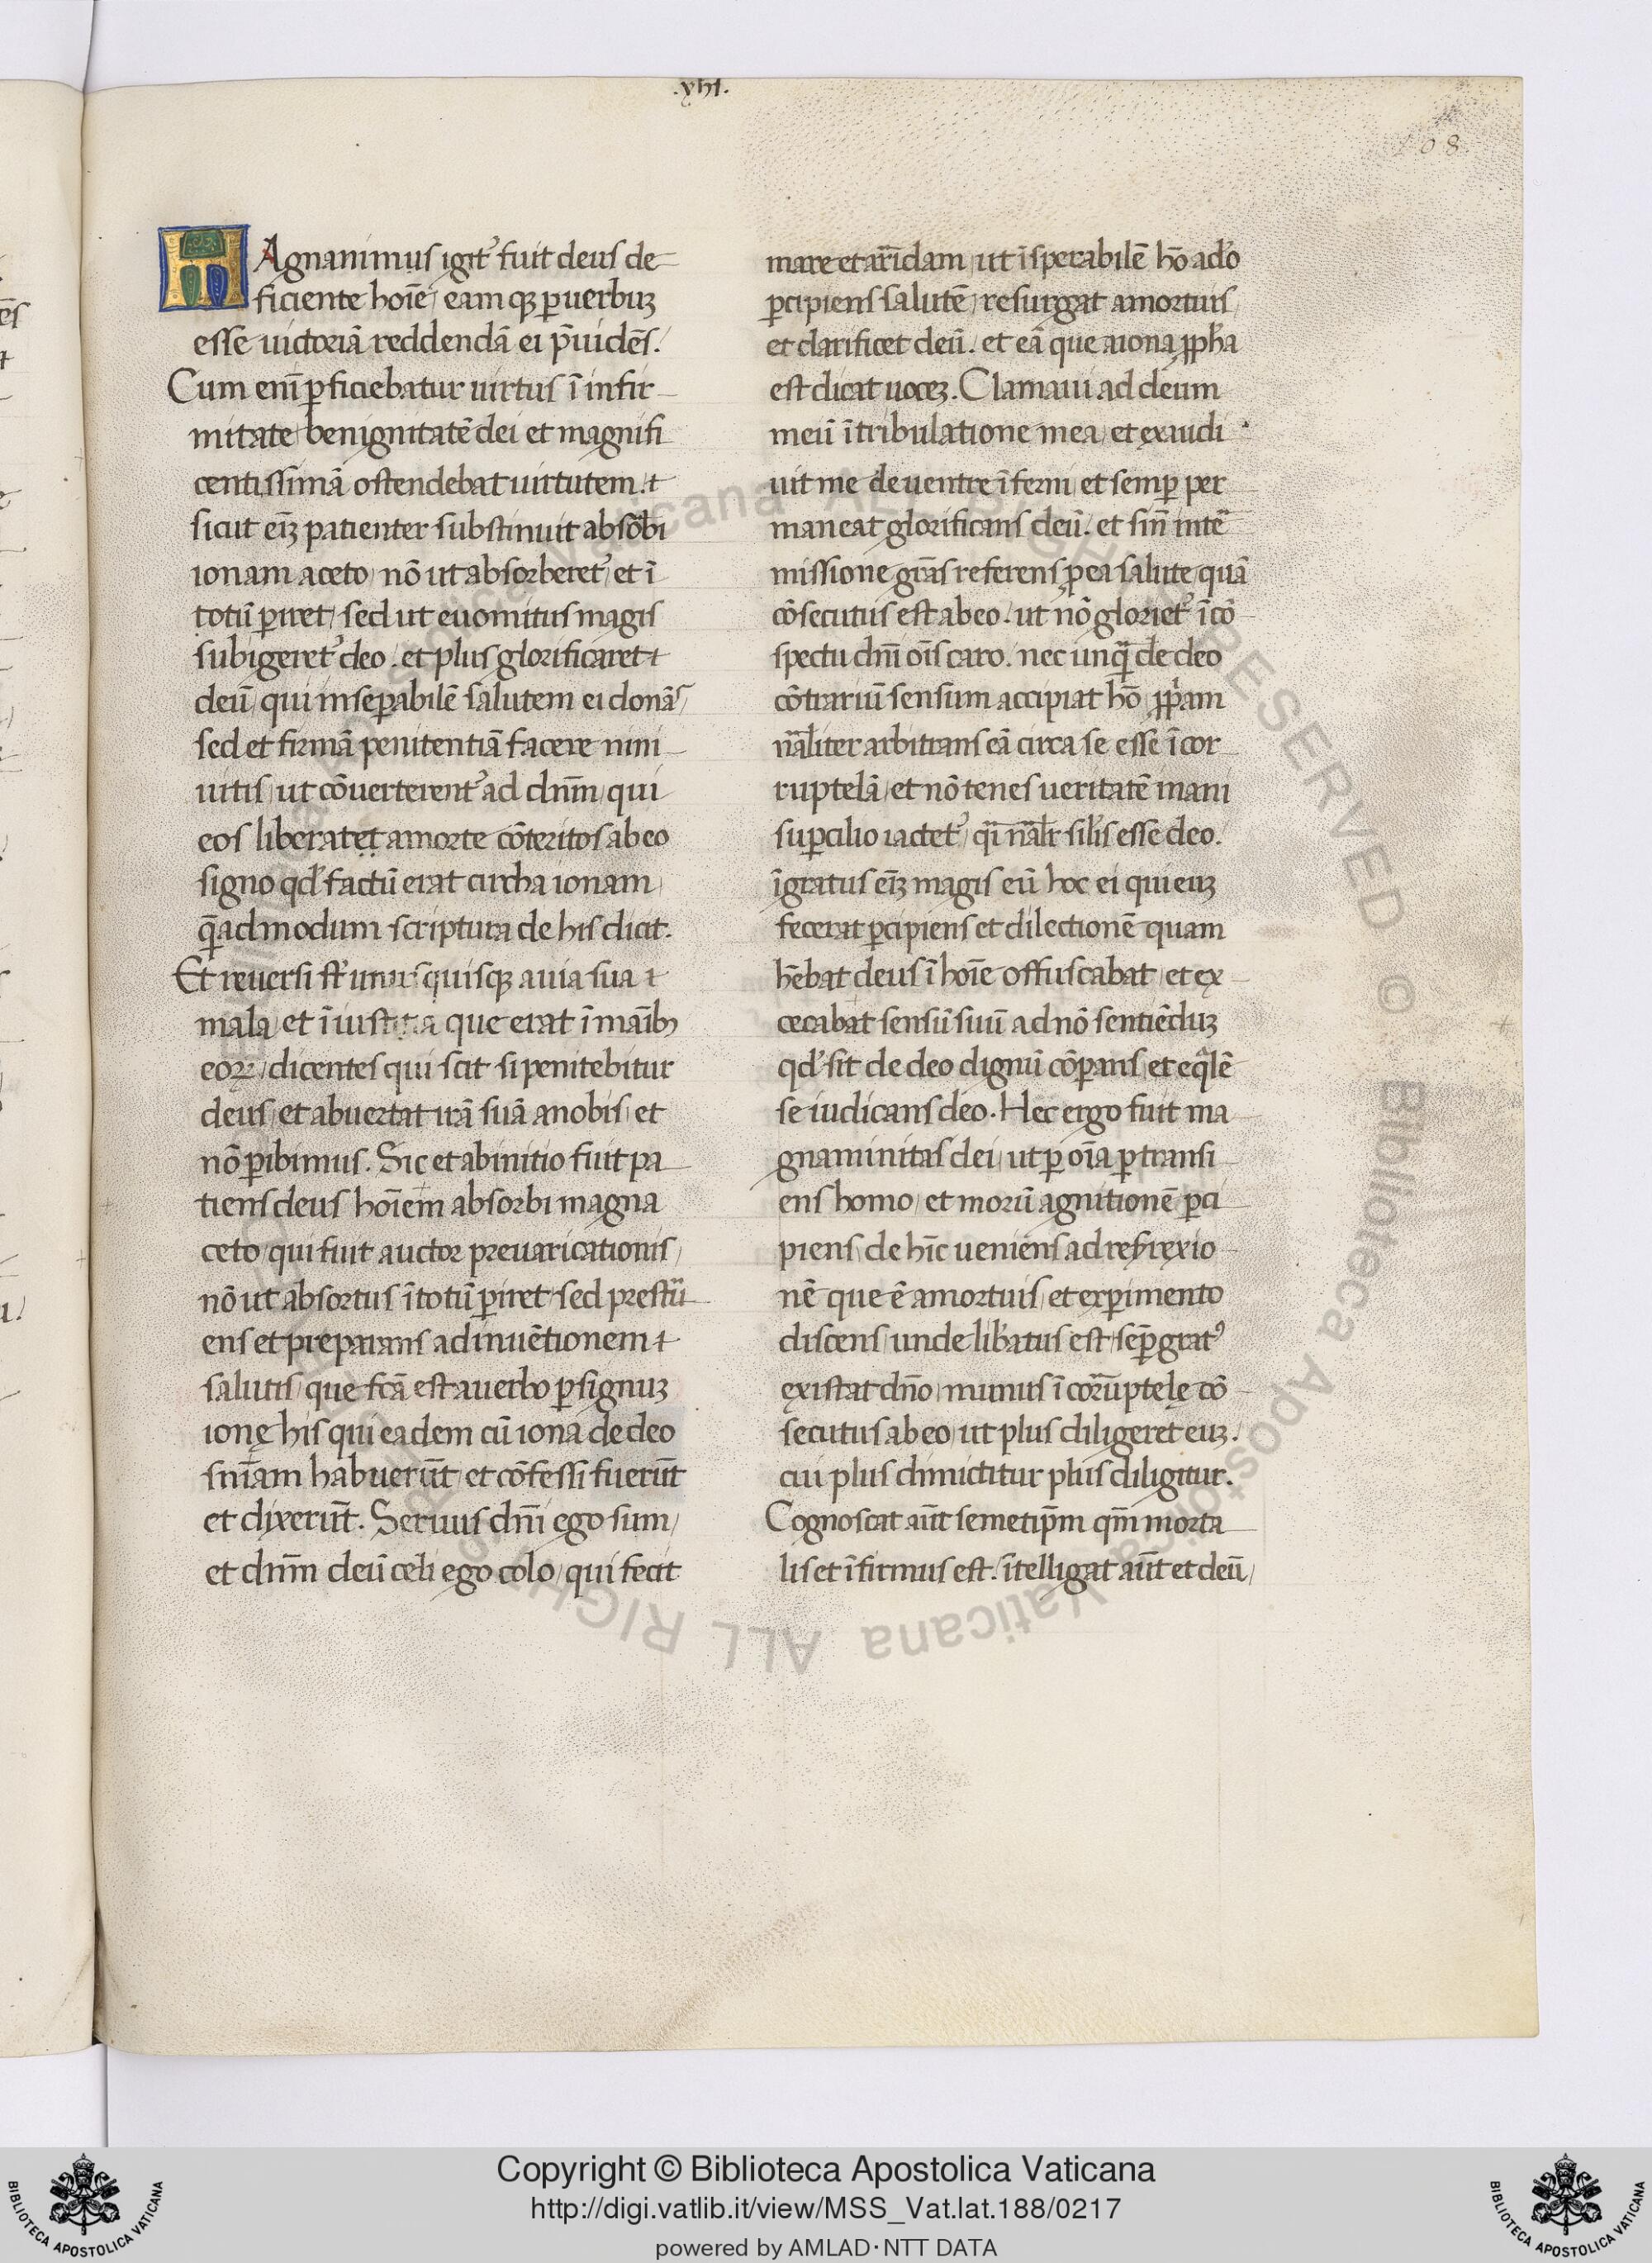 .xhı.
108
MAgnanimus igit᷑ fuit deus de
ficiente hoı̄e, eam qꝫ ꝑ uerbuꝫ
esse uictoriā reddendā ei p̄uidēs.
Cum enı̄ ꝑficiebatur uirtus ı̄ infir
mitate benignitatē dei et magnifi
centissimā ostendebat uirtutem.
sicut eı̄ꝫ patienter substinuit absōbi
ionam a ceto, nō ut absorberet᷑, et ı̄
totū ꝑiret, sed ut euomitus magis
subigeret᷑ deo. et plus glorificaret
deū, qui inseꝑabilē salutem ei donās,
sed et firmā penitentiā facere nini
uitis, ut cōuerterent᷑ ad dn̄m, qui
eos liberatet a morte cōteritos ab eo
signo qd̛ factū erat circha ionam,
q̄admodum scriptura de his dicit.
Et reuersi st̄ unusquisqꝫ a uia sua
mala, et ı̄iustitia que erat ı̄ maı̄bꝫ
eoꝝ, dicentes qui scit si penitebitur
deus, et abuertat irā suā a nobis, et
nō ꝑibimus. Sic et ab initio fuit pa
tiens deus hoı̄em absorbi magna
ceto, qui fuit auctor preuaricationis,
nō ut absortus ı̄totū ꝑiret, sed prestū
ens et preparans adinuētionem
salutis, que fcā est a uerbo ꝑ signuꝫ
ionę his qui eadem cū iona de deo
snı̄am habuerūt, et cōfessi fuerūt
et dixerūt. Seruus dn̄i ego sum,
et dn̄m deū celi ego colo, qui fecit
mare et arı̄dam, ut ı̄sperabilē hō a dō
ꝑcipiens salutē, resurgat a mortuis,
et clarificet deū. et eā que a iona ꝓph̄a
est dicat uoceꝫ. Clamaui ad deum
meū ı̄ tribulatione mea, et exaudi
uit me de uentre ı̄ferni, et semꝑ per
maneat glorificans deū. et sin̄ intē
missione grās referens, ꝓ ea salute, quā
cōsecutus est ab eo. ut nō gloriet᷑ ı̄ cō
spectu dn̄i oı̄s caro. nec unqᷓ de deo
cōtrariū sensum accipiat hō ꝓpam
nāliter arbitrans eā circa se esse ı̄cor
ruptelā, et nō tenes ueritatē mani
suꝑcilio iactet᷑, qı̄ nālr̄ sil̄is esse deo.
ı̄gratus eı̄ꝫ magis eū hoc ei qui euꝫ
fecerat ꝑcipiens et dilectionē quam
hēbat deus ı̄ hoı̄e offuscabat, et ex
cecabat sensū suū ad nō sentiēduꝫ
qd̛ sit de deo dignū cōꝑans, et eqᷓlē
se iudicans deo. Hec ergo fuit ma
gnaminitas dei, ut ꝑ oı̄a ꝑtransi
ens homo, et morū agnitionē ꝑci
piens, de hı̄c ueniens ad refrexio
nē que ē a mortuis, et exꝑimento
discens, unde lib̄atus est, semꝑ gratꝰ
existat dn̄o, munus ı̄corruptelę cō
secutus ab eo, ut plus diligeret euꝫ.
cui plus dimictitur plus diligitur.
Cognoscat aūt semetip̄m qm̄ morta
lis et ı̄firmus est. ı̄telligat aūt et deū,
Copyright © Biblioteca Apostolica Vaticana
http://digi.vatlib.it/view/MSS_Vat.lat.188/0217
powered by AMLAD·NTT DATA